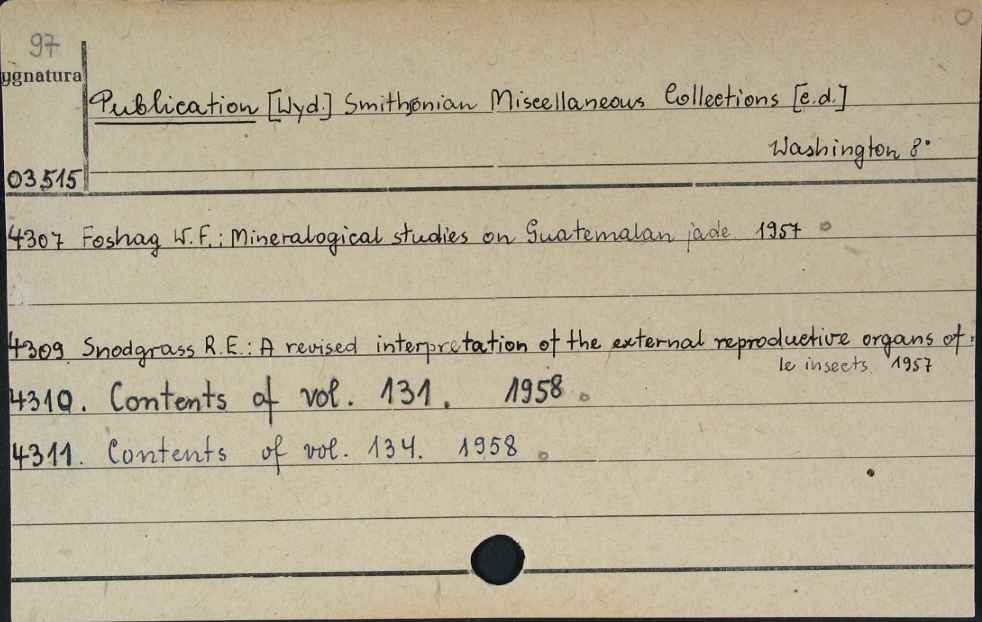 97
ygnatura
Publication [Wyd.] Smithsonian Miscellaneous Collections [e.d.]
Washington 8°
03515
4307 Foshag W.F.: Mineralogical studies on Guatemalan jade 1957
4309 Snodgrass R.E.: A revised interpretation of the external reproductive organs of
le insects. 1957
4310. Contents of vol. 131. 1958
4311. Contents of vol. 134. 1958